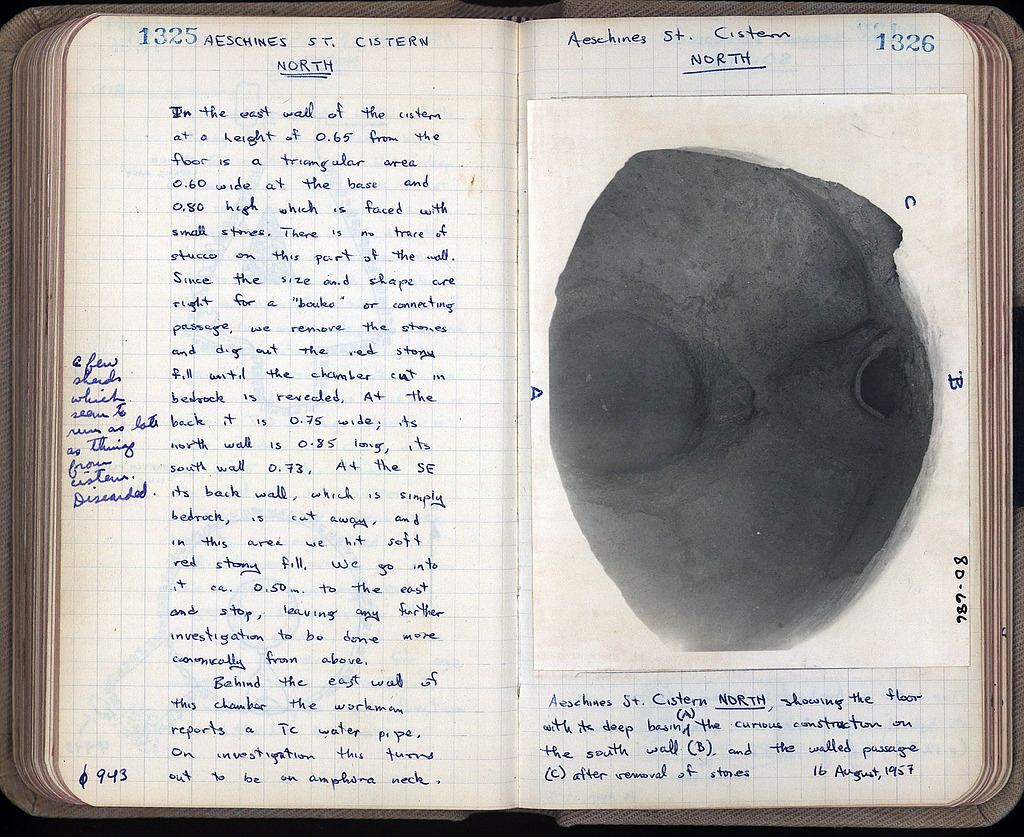 1325 AESCHINES ST. CISTERN
NORTH
In the east wall of the cistern
at a height of 0.65 from the
floor is a triangular area
0.60 wide at the base and
0.80 high which is faced with
small stones. There is no trace of
stucco on this part of the wall.
Since the size and shape are
right for a "bouko" or connecting
passage, we remove the stones
and dig out the red stony
fill until the chamber cut in
bedrock is revealed. At the
back it is 0.75 wide; its
north wall is 0.85 long, its
south wall 0.73. At the SE
its back wall, which is simply
bedrock, is cut away, and
in this area we hit soft
red stony fill. We go into
it ca. 0.50 m. to the east
and stop, leaving any further
investigation to be done more
canonically from above.
Behind the east wall of
this chamber the workman
reports a TC water pipe.
On investigation this turns
out to be an amphora neck.
a few
sherds
which
seem to
run as late
as things
from
cistern.
Discarded.
φ 943
Aeschines St. Cistern
1326
NORTH
A
B
C
80-686
Aeschines St. Cistern NORTH, showing the floor
with its deep basin (A), the curious construction on
the south wall (B), and the walled passage
(C) after removal of stones 16 August, 1957